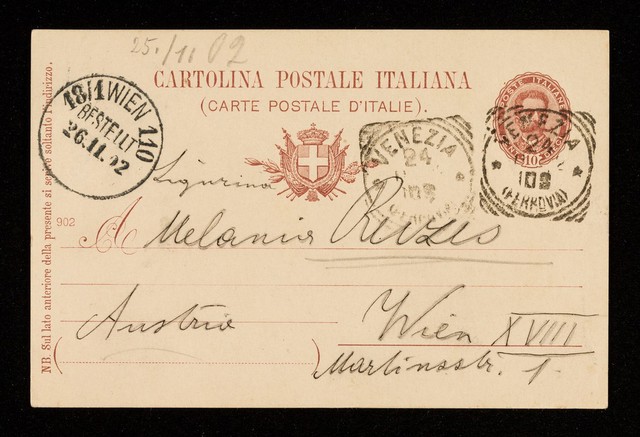 25./11 02
CARTOLINA POSTALE ITALIANA
(CARTE POSTALE D'ITALIE).
18/1 WIEN 110
BESTELLT
26.11.02
VENEZIA
24
102
(FERROVIA)
POSTE ITALIANE
10
VENEZIA
24
102
(FERROVIA)
Signorina
902
A Melanie
Austria
Wien XVIII
Martinsstr. 1.
NB. Sul lato anteriore della presente si scrive soltanto l'indirizzo.